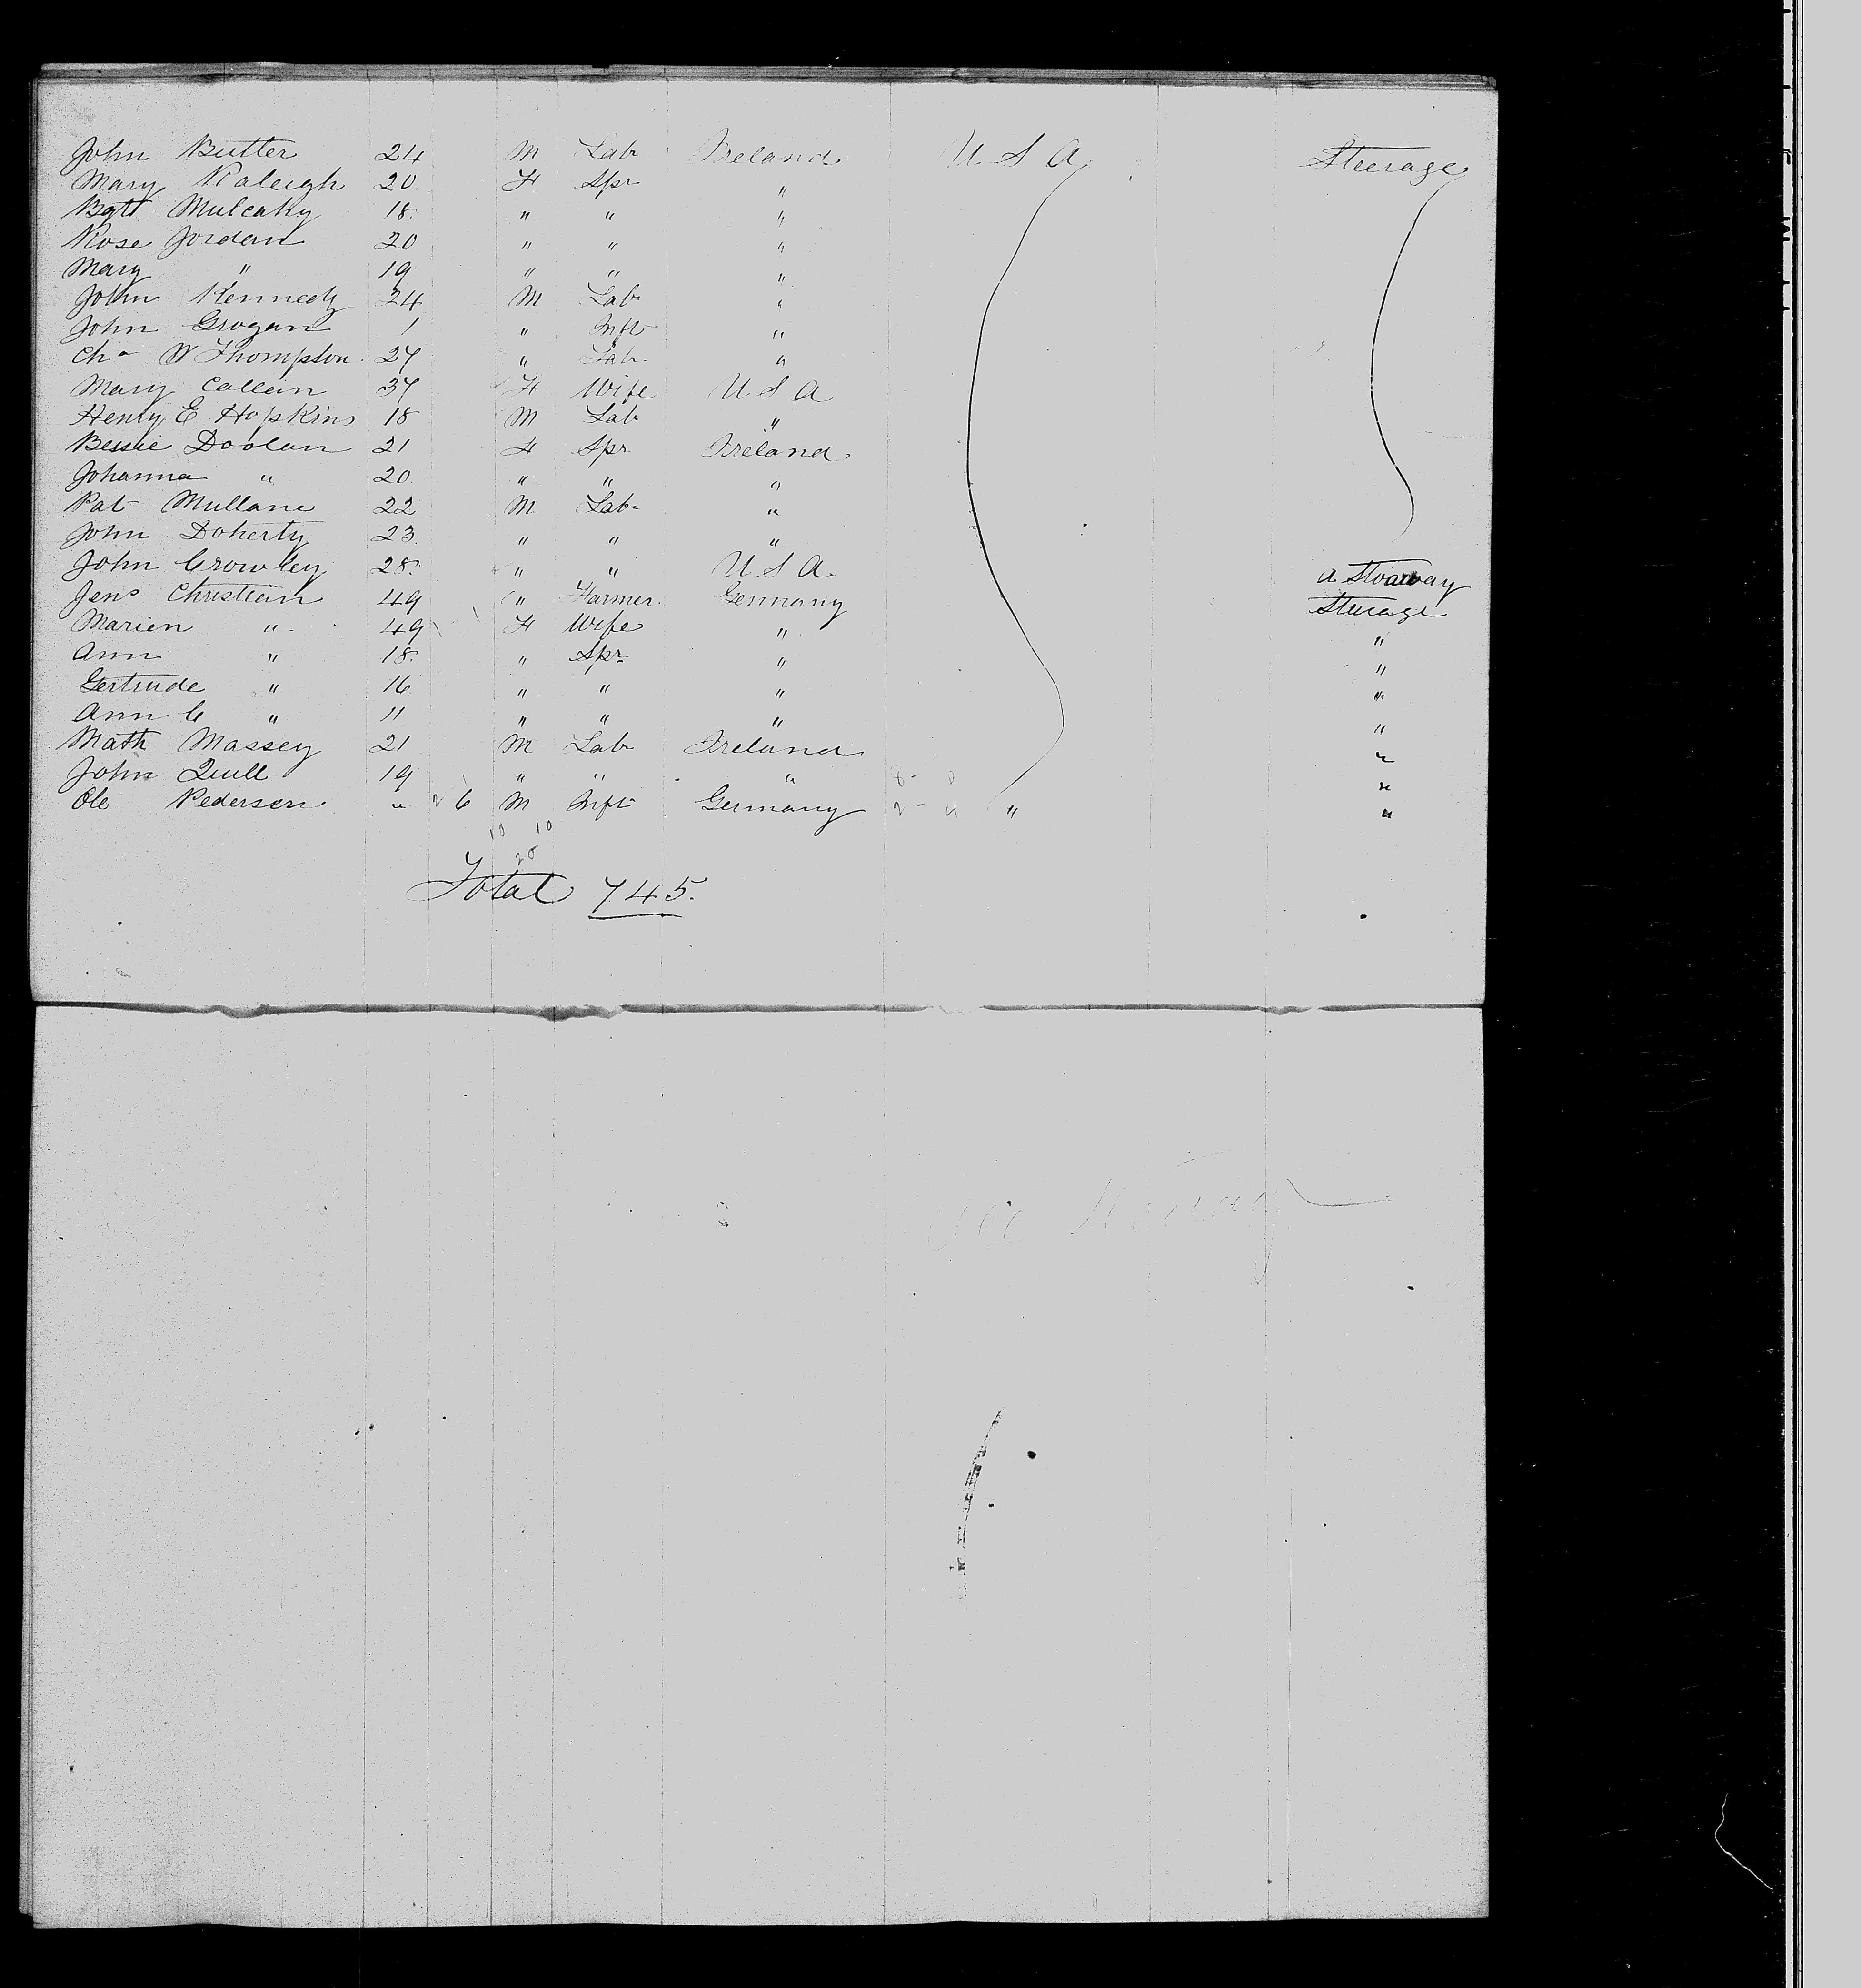 John Butler 24 M Lab Ireland U S A Steerage
Mary Raleigh 20 F Spr "
Bgt Mulcahy 18 " " "
Rose Jordan 20 " " "
Mary " 19 " " "
John Kennedy 24 M Lab "
John Grogan 1 " Inft "
Chas W Thompson 27 " Lab "
Mary Callan 37 F Wife U S A
Henry E Hopkins 18 M Lab "
Bessie Doolan 21 F Spr Ireland
Johanna " 20 " " "
Pat Mullane 22 M Lab "
John Doherty 23 " " "
John Crowley 28 " " U S A a Stoaway
Jens Christian 49 " Farmer Germany Steerage
Marien " 49 F Wife " "
Ann " 18 " Spr " "
Gertrude " 16 " " " "
Ann C " 11 " " " "
Math Massey 21 M Lab Ireland "
John Quill 19 " " " "
Ole Pedersen " 6 M Inft Germany " "
10 10
20
Total 745.